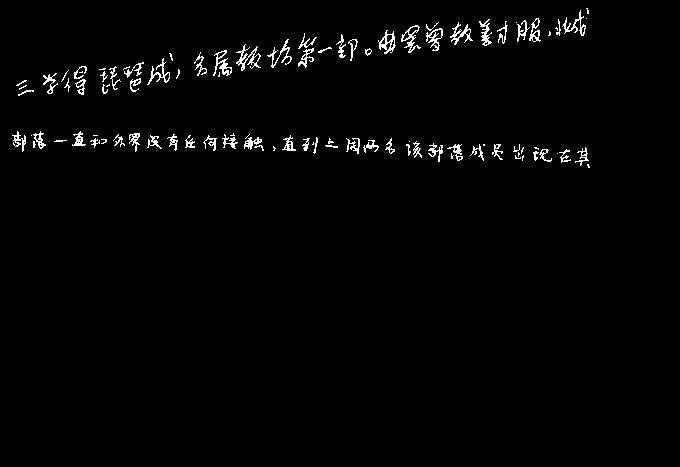 三学得琵琶成,名属教坊第一部。曲罢曾教善才服,妆成
部落一直和外界没有任何接触,直到上周两名该部落成员出现在其